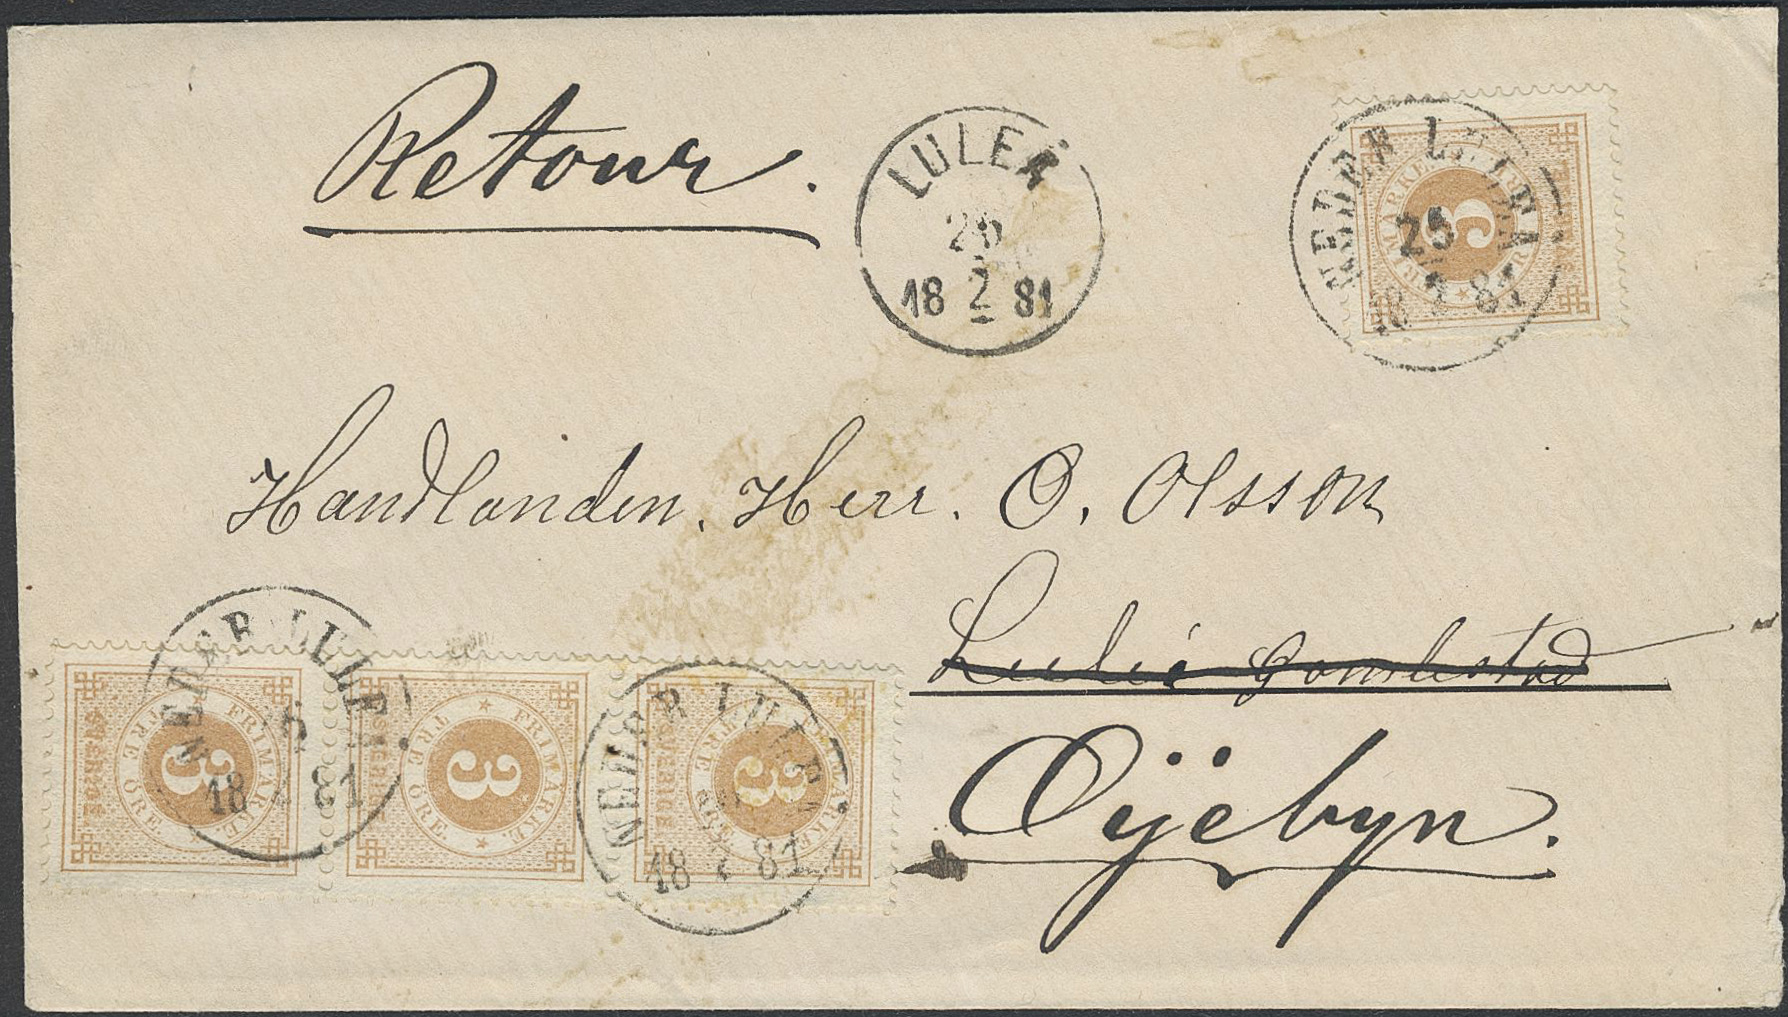 Retour.
LULEÅ
26
2
18 81
NEDER LULEÅ
25
18 2 81
FRIMÄRKE
3
Handlanden. Herr. O. Olsson
Luleå Gamlestad
Öijebyn.
NEDER LULEÅ
18 81
SVERIGE
FRIMÄRKE.
TRE ÖRE.
3
SVERIGE
FRIMÄRKE.
TRE ÖRE.
3
NEDER LULEÅ
18 2 81
SVERIGE
FRIMÄRKE
TRE ÖRE.
3